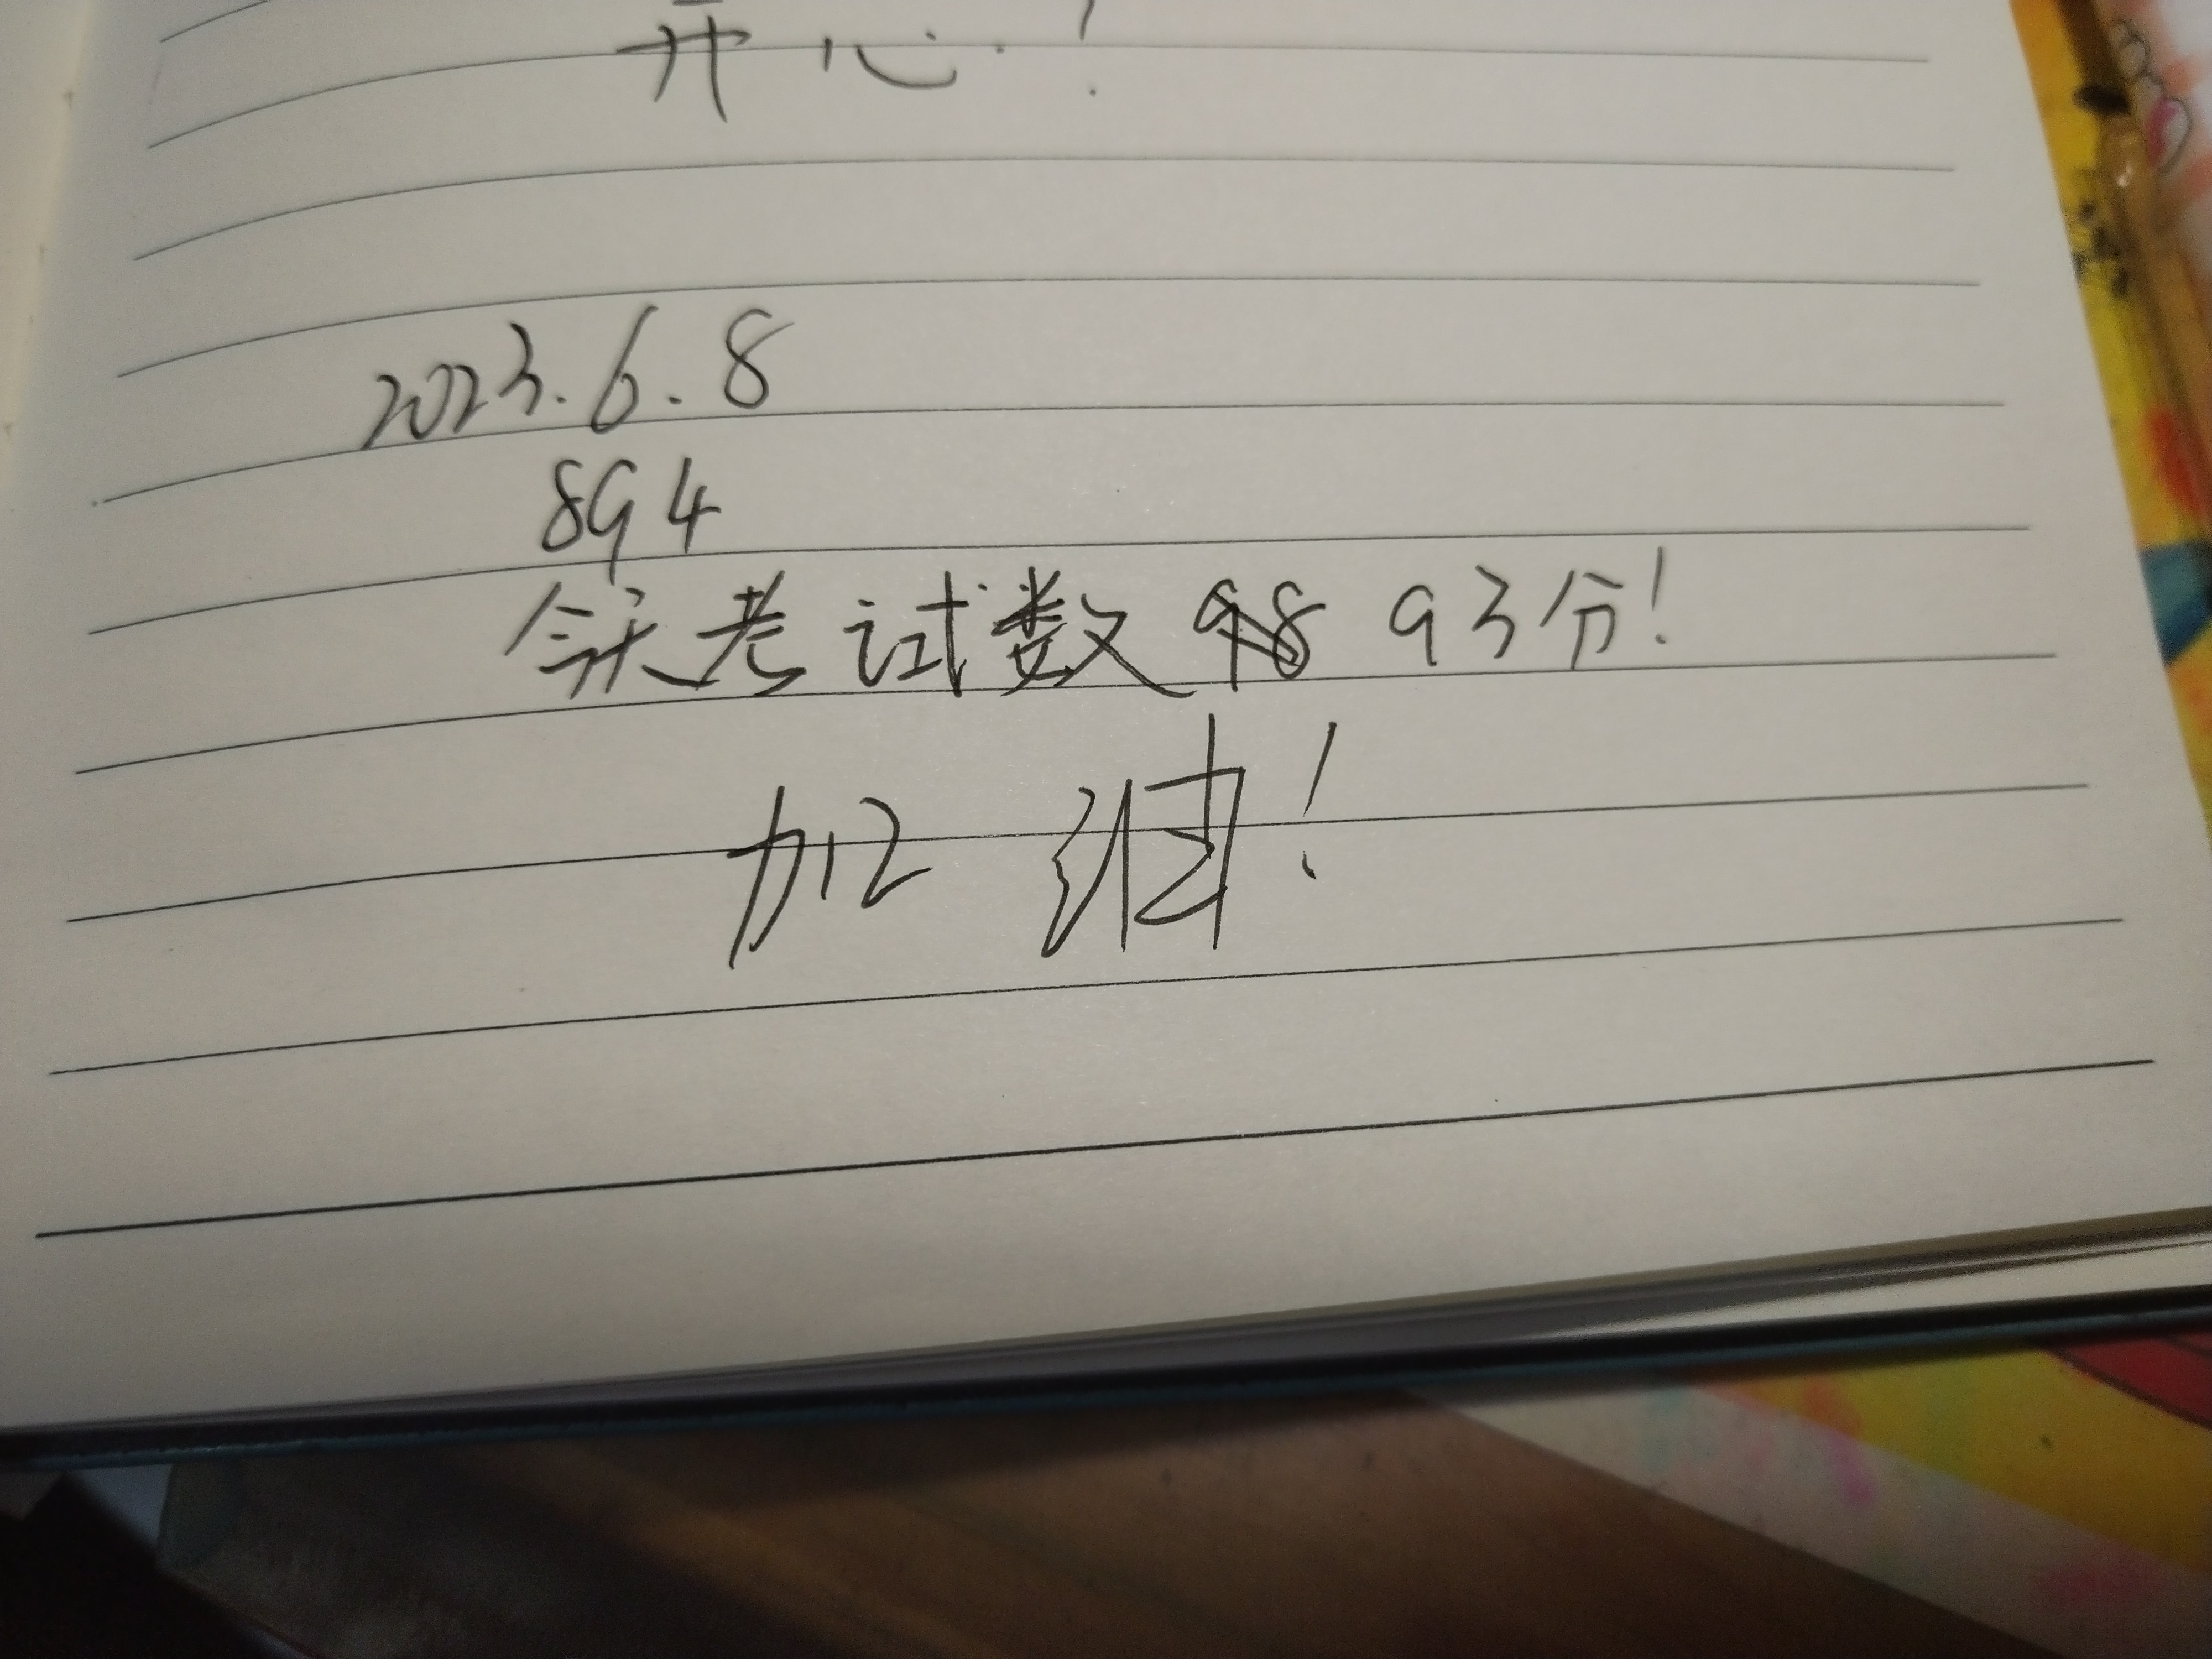 开心!
2023.6.8
894
今天考试数 98 93分!
加油!